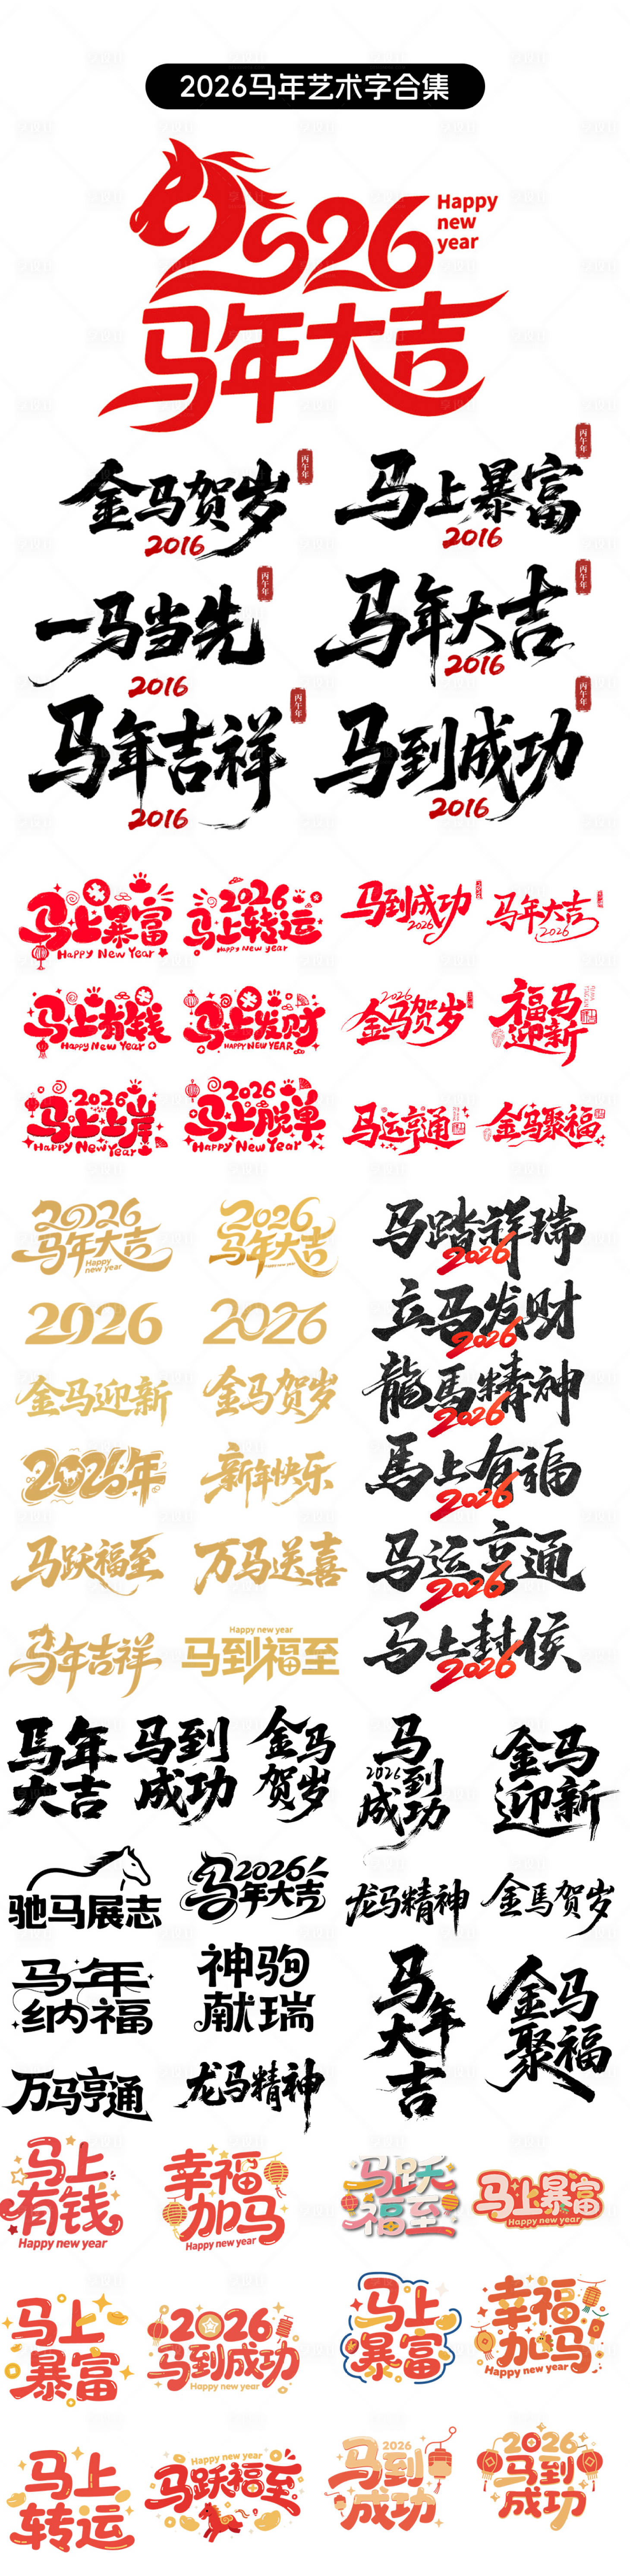 2026马年艺术字合集
2026
Happy
new
year
马年大吉
丙午年
金马贺岁
2016
丙午年
马上暴富
2016
丙午年
一马当先
2016
丙午年
马年大吉
2016
丙午年
马年吉祥
2016
丙午年
马到成功
2016
马上暴富
Happy New Year
2026
马上转运
Happy New year
马到成功
2026
马年大吉
2026
马上有钱
Happy New Year
马上发财
HAPPY NEW YEAR
2026
金马贺岁
福马
迎新
2026
马上上岸
Happy New Year
2026
马上脱单
Happy New Year
马运亨通
金马聚福
2026
马年大吉
Happy
new year
2026
马年大吉
Happy new year
马踏祥瑞
2026
2026
2026
立马发财
2026
金马迎新
金马贺岁
龍馬精神
2026
2026年
新年快乐
馬上有福
2026
马跃福至
万马送喜
马运亨通
2026
马年吉祥
Happy new year
马到福至
马上封侯
2026
馬年
大吉
马到
成功
金马
贺岁
马
2026
到
成功
金马
迎新
驰马展志
2026
马年大吉
龙马精神
金馬贺岁
马年
纳福
神驹
献瑞
马
年
大
吉
金马
聚福
万马亨通
龙马精神
马上
有钱
Happy new year
幸福
加马
Happy new year
马跃
福至
马上暴富
Happy new year
马上
暴富
2026
马到成功
Happy new year
马上
暴富
幸福
加马
Happy new year
马上
转运
Happy new year
马跃福至
2026
马到
成功
2026
马到
成功